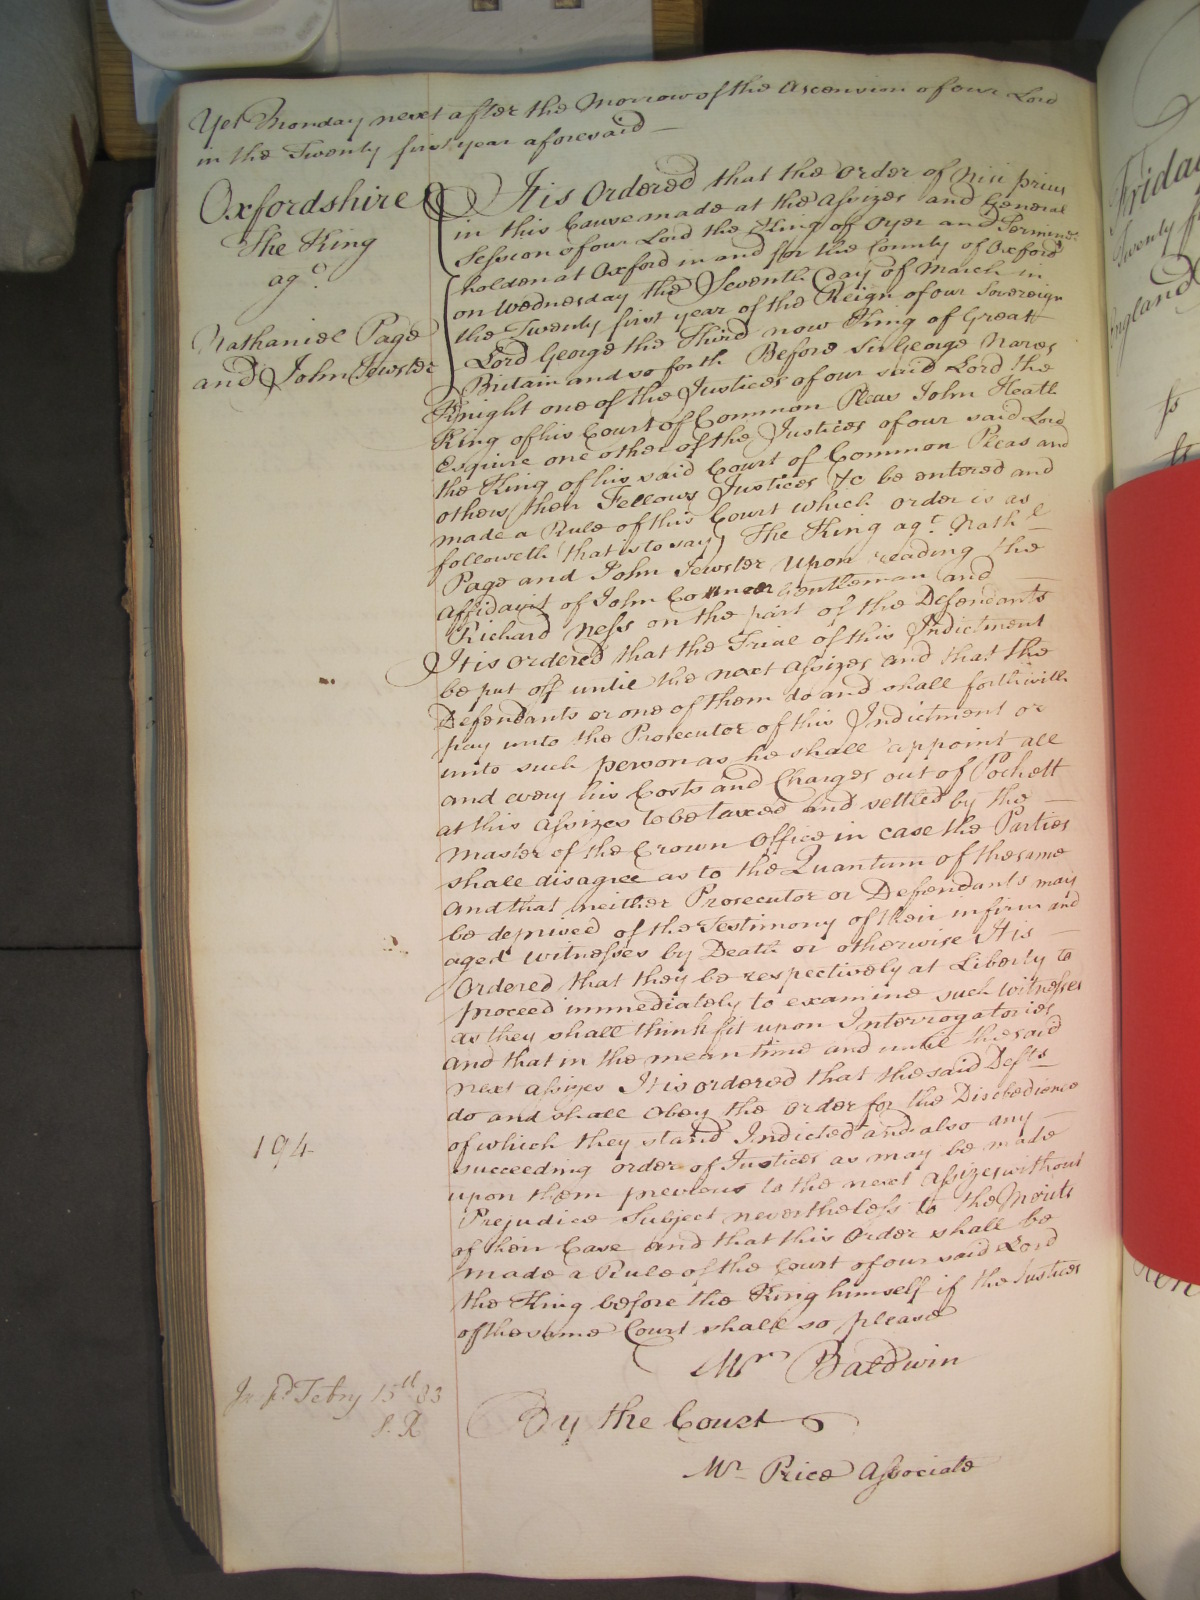 Yet Monday next after the Morrow of the Ascension of our Lord
in the Twenty first year aforesaid —
Oxfordshire
The King
agt.
Nathaniel Page
and John Tewster
It is Ordered that the Order of Nisi prius
in this Cause made at the Assizes and General
Session of our Lord the King of Oyer and Terminer
holden at Oxford in and for the County of Oxford
on Wednesday the Seventh Day of March in
the Twenty first year of the Reign of our Sovereign
Lord George the Third now King of Great
Britain and so forth Before Sir George Nares
Knight one of the Justices of our said Lord the
King of his Court of Common Pleas John Heath
Esquire one other of the Justices of our said Lord
the King of his said Court of Common Pleas and
others their Fellows Justices To be entered and
made a Rule of this Court which order is as
followeth (that is to say) The King agt. Nathl.
Page and John Tewster Upon reading the
Affidavit of John Gentleman and
Richard Ness on the part of the Defendants
It is ordered that the Trial of this Indictment
be put off until the next Assizes and that the
Defendants or one of them do and shall forthwith
pay unto the Prosecutor of this Indictment or
unto such person as he shall appoint all
and every his Costs and Charges out of Pockett
at this Assizes to be taxed and settled by the —
Master of the Crown Office in case the Parties
shall disagree as to the Quantum of the same
and that neither Prosecutor or Defendants may
be deprived of the Testimony of their infirm and
aged witnesses by Death or otherwise It is —
Ordered that they be respectively at Liberty to
proceed immediately to examine such witnesses
as they shall think fit upon Interrogatories
and that in the mean time and until the said
next assizes It is ordered that the said Defts
do and shall obey the order for the Disobedience
of which they stand Indicted and also any —
succeeding order of Justices as may be made
upon them previous to the next Assizes without
Prejudice Subject nevertheless to the Merits
of their Case and that this Order shall be
made a Rule of the Court of our said Lord
the King before the King himself if the Justices
of the same Court shall so please
Mr. Baldwin
By the Court
Mr. Price Associate
194
Febry 15th 83
Friday
Twenty
England